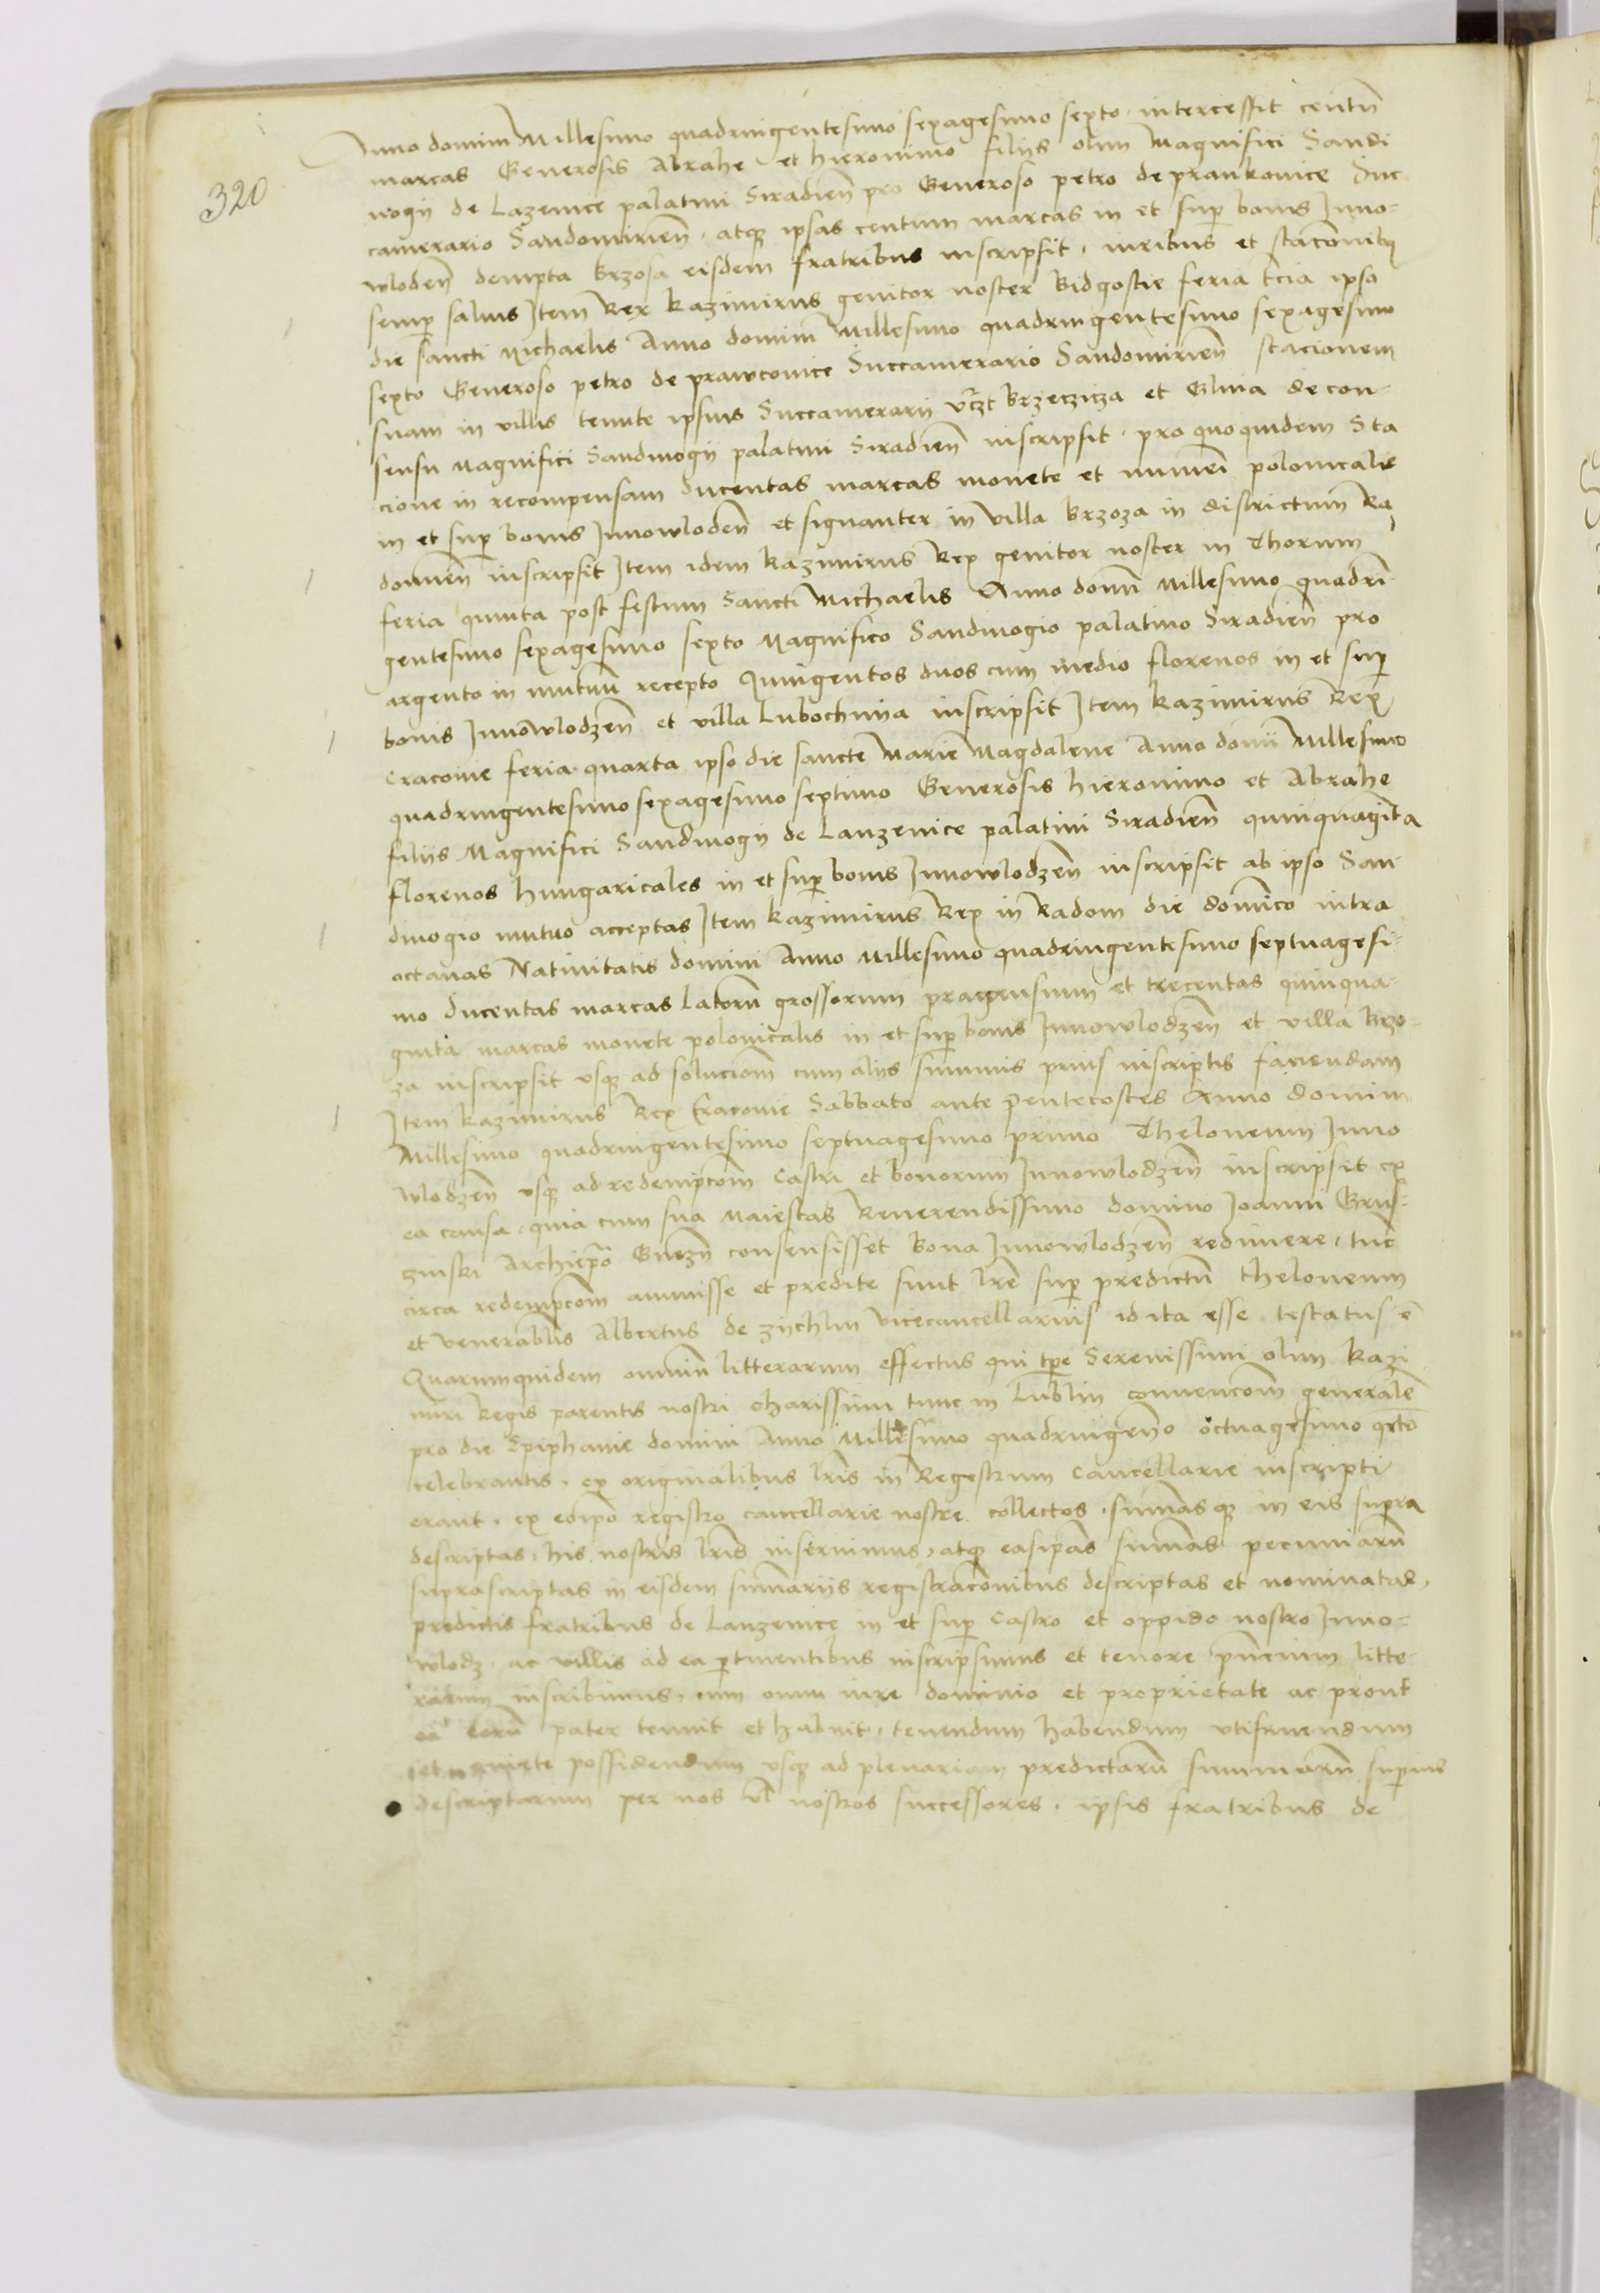 320
Anno domini Millesimo quadringentesimo sexagesimo sexto intercessit centũ
marcas Generosis Abrahe et hieronimo filijs olim Magnifici Sandi
vogij de Lazenice palatini Siradieñ pro Generoso petro de prankonice Suc
camerario Sandomirieñ, atq ipsas centum marcas in et sup bonis Inno-
wlodeñ dempta brzosa eisdem fratribus inscripsit, iuribus et stacõnibꝫ
semp salvis Item Rex Kazimirus genitor noster Bidgostie feria t̃cia ipso
die sancti Michaelis Anno domini Millesimo quadringentesimo sexagesimo
sexto Generoso petro de prawconice Succamerario Sandomirieñ stacionem
suam in villis tenute ipsius Succamerarij vcꝫt brzeczicza et Glina de con-
sensu Magnifici Sandivogij palatini Siradieñ inscripsit, pro quoquidem Sta
cione in recompensam ducentas marcas monete et numeri polonicalis
in et sup bonis Innowlodeñ et signanter in villa brzoza in districtum Ra
domieñ inscripsit Item idem Kazimirus Rex genitor noster in Thorun
feria quinta post festum Sancti Michaelis Anno domĩ Millesimo quadrin-
gentesimo sexagesimo sexto Magnifico Sandivogio palatino Siradieñ pro
argento in mutuũ recepto Quingentos duos cum medio florenos in et sup
bonis Innowlodzeñ et villa Lubochnia inscripsit Item Kazimirus Rex
Cracovie feria quarta ipso die sancte Marie Magdalene Anno domĩ Millesimo
quadringentesimo sexagesimo septimo Generosis hieronimo et Abrahe
filijs Magnifici Sandivogij de Lanzenice palatini Siradieñ quinquagĩta
florenos hungaricales in et sup bonis Innowlodzeñ inscripsit ab ipso San
divogio mutuo acceptas Item Kazimirus Rex in Radom die domĩco intra
octavas Nativitatis domini Anno Millesimo quadringentesimo septuagesi-
mo ducentas marcas latorũ grossorum pragensium et trecentas quinqua-
ginta marcas monete polonicalis in et sup bonis Innowlodzeñ et villa brzo-
za inscripsit usq ad soluciõm cum alijs summis prius inscriptis faciendam
Item Kazimirus Rex Cracovie Sabbato ante Pentecostes Anno domini
Millesimo quadringentesimo septuagesimo primo Theloneum Inno
wlodzeñ usq ad redempcõm Castri et bonorum Innowlodzeñ inscripsit ex
ea causa, quia cum sua Maiestas Reverendissimo domino Joanni Grus-
zinski Archiep̃o Gnezñ consensisset bona Innowlodzeñ redimere, tuc
circa redempcõm amisse et perdite sunt l̃re sup predictũ theloneum
et venerabilis Albertus de zychlin vicecancellarius id ita esse testatus ẽ
Quarumquidem omniũ litterarum effectus qui tp̃e Serenissimi olim Kazi
miri Regis parentis nostri charissimi tunc in Lublin convencõm generalẽ
pro die Epiphanie domini Anno Millesimo quadringeñº octuagesimo qrto
celebrantis, ex originalibus l̃ris in Regestrum Cancellarie inscripti
erant, ex eoip̃o registro cancellarie nostre collectos, sum̃asq in eis supra
descriptas, his nostris l̃ris inseruimus, atq easip̃as sum̃as pecuniarũ
suprascriptas in eisdem sum̃arijs registracõnibus descriptas et nominatas,
predictis fratribus de Lanzenice in et sup Castro et oppido nostro Inno-
wlodz ac villis ad ea ptinentibus inscripsimus et tenore pñcium litte-
rarum inscribimus, cum omni iure dominio et proprietate ac prout
ea eorũ pater tenuit et habuit, tenendum habendum utifruendum
et quiete possidendum usq ad plenariam predictarũ summarũ supius
descriptarum per nos vl̃ nostros successores, ipsis fratribus de